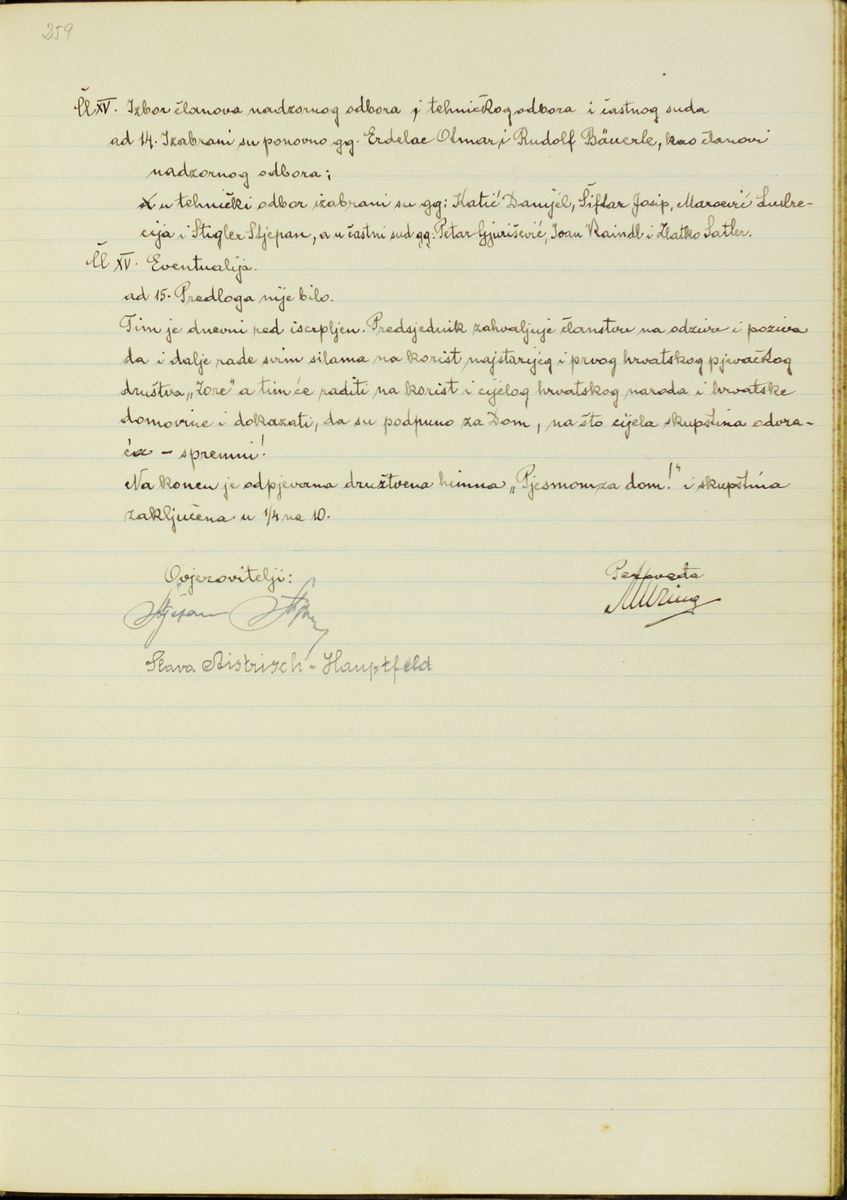 259
Čl XV. Izbor članova nadzornog odbora, tehničkog odbora i častnog suda
ad 14. Izabrani su ponovno gg. Erdelac Otmar i Rudolf Bäuerle, kao članovi
nadzornog odbora;
u tehnički odbor izabrani su gg: Katić Danijel, Šiftar Josip, Maroević Lukre-
cija i Stigler Stjepan, a u častni sud gg. Petar Gjurišević, Ivan Kaindl i Zlatko Satler.
Čl XV. Eventualija.
ad 15. Predloga nije bilo.
Tim je dnevni red iscrpljen. Predsjednik zahvaljuje članstvu na odzivu i poziva
da i dalje rade svim silama na korist najstarijeg i prvog hrvatskog pjevačkog
društva „Zore" a tim će raditi na korist i cijelog hrvatskog naroda i hrvatske
domovine i dokazati, da su podpuno za Dom, na što cijela skupština odvra-
ća - spremni!
Na koncu je odpjevana družtvena himna „Pjesmom za dom!" i skupština
zaključena u 1/4 na 10.
Ovjerovitelji:
Perovođa
Stjepan
Slava Bistrisch - Hauptfeld